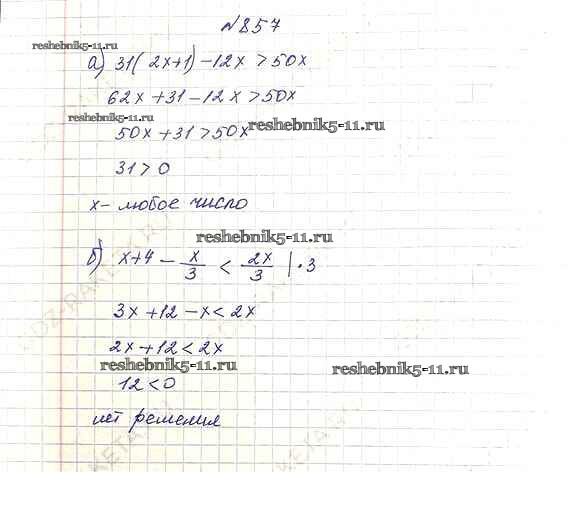 №857
reshebnik5-11.ru
а) 31(2x+1)-12x>50x
62x+31-12x>50x
reshebnik5-11.ru
reshebnik5-11.ru
50x+31>50x
31>0
x- любое число
reshebnik5-11.ru
б) x+4 - x/3 < 2x/3 |·3
3x+12-x<2x
2x+12<2x
reshebnik5-11.ru
reshebnik5-11.ru
12<0
нет решения